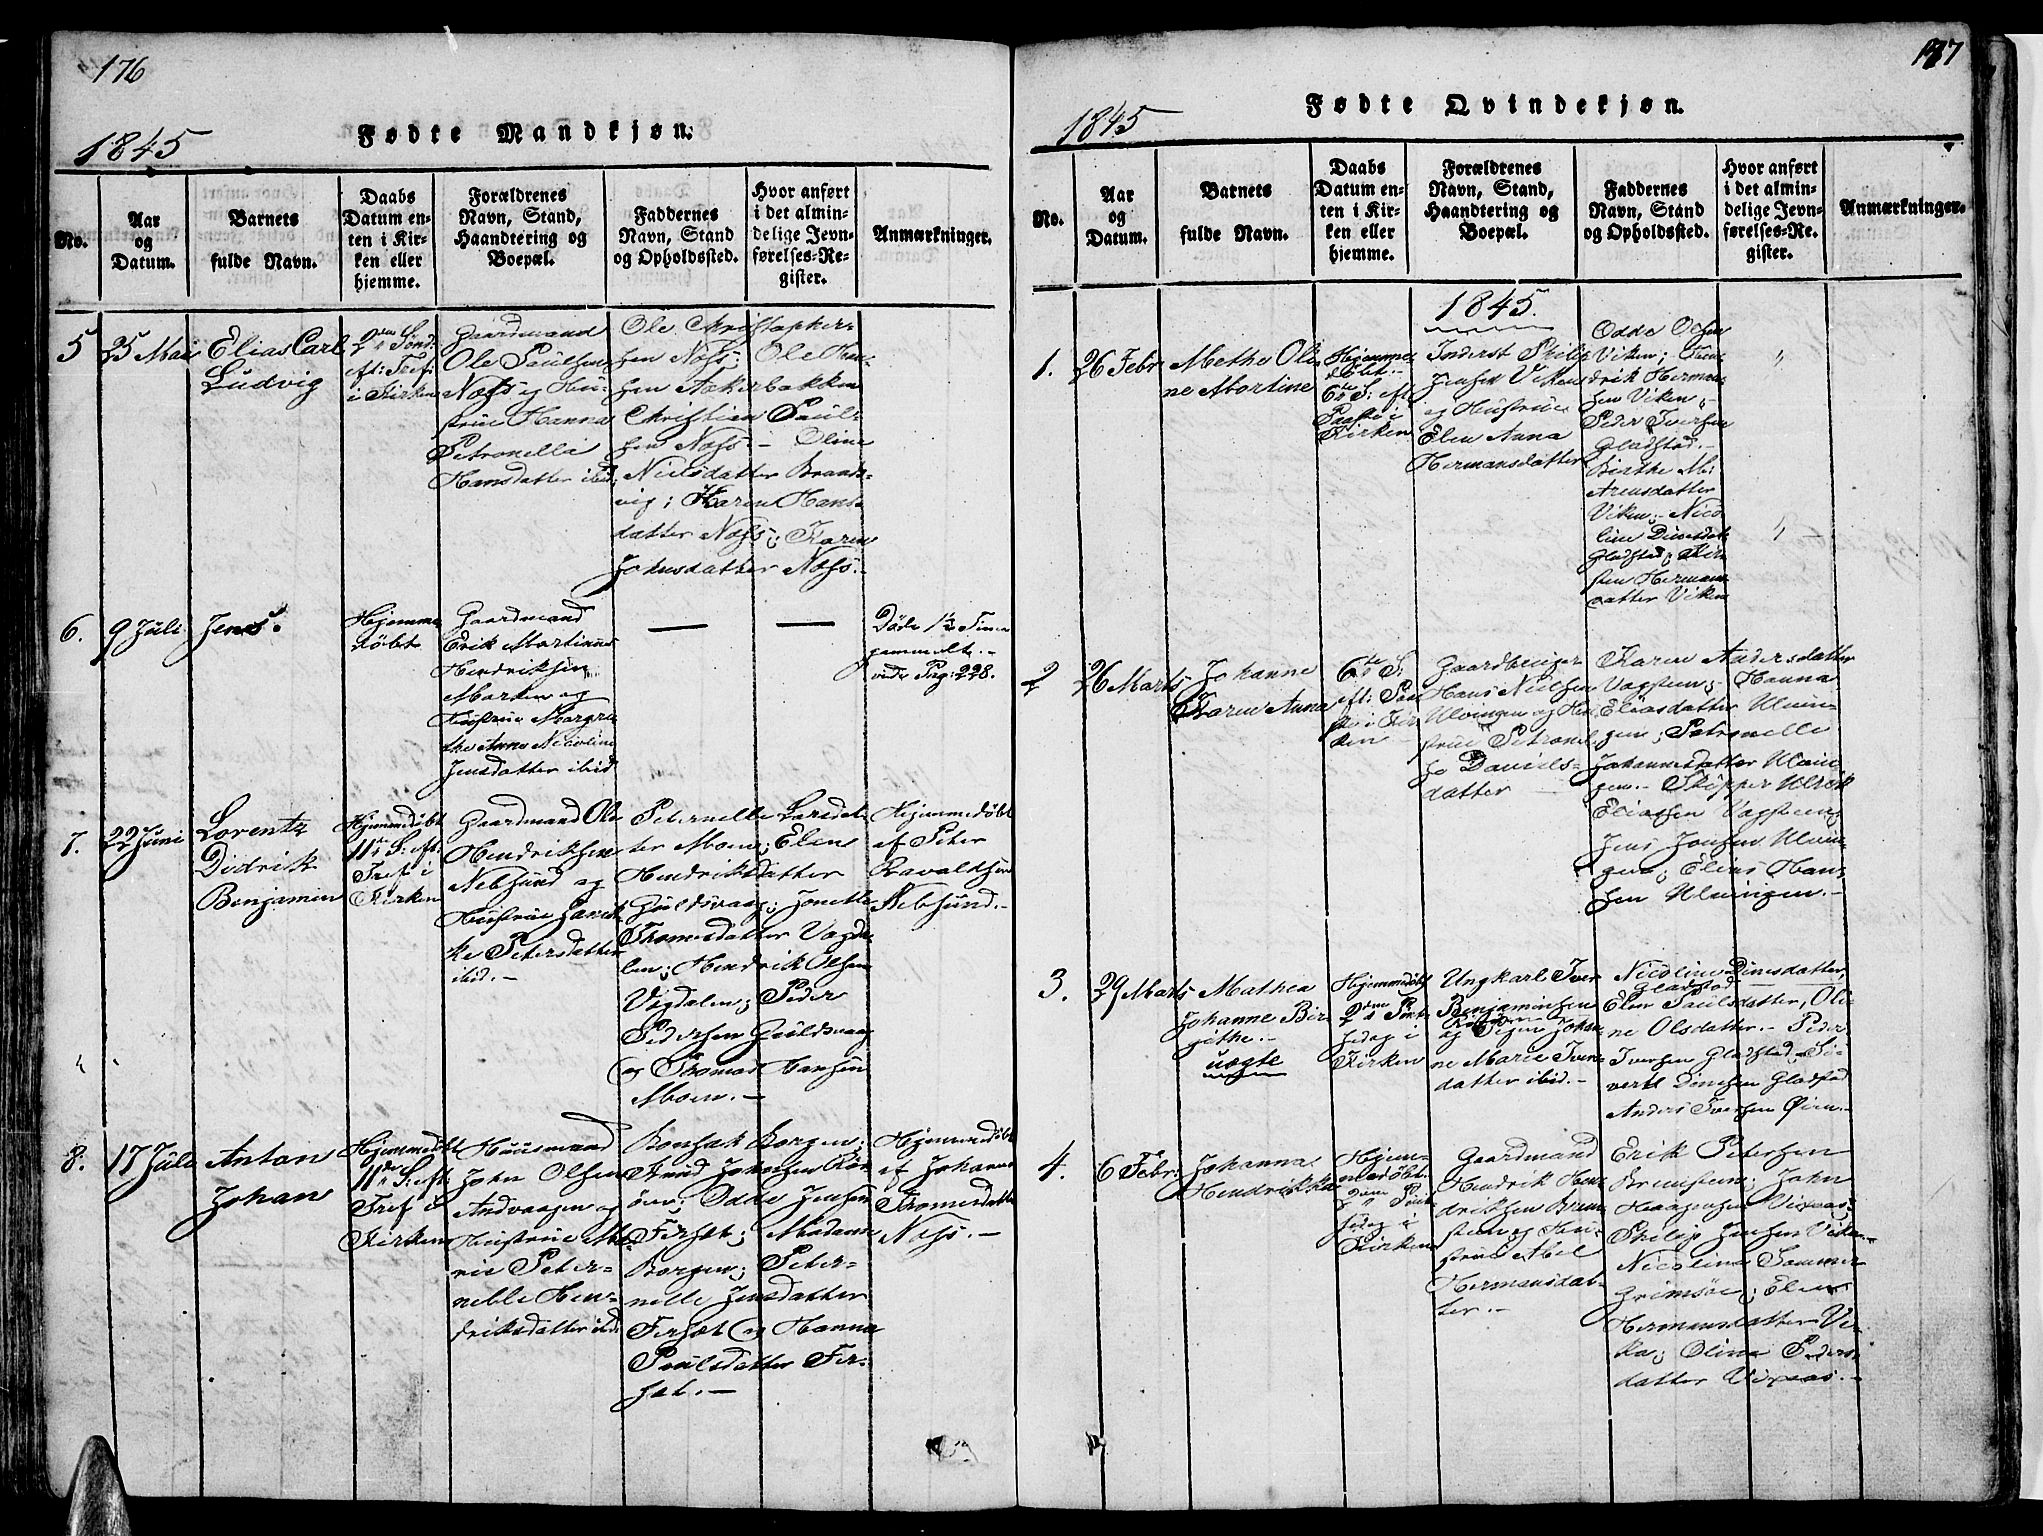 176
1845
Fødte Mandkjøn.
No.
Aar
og
Datum.
Barnets
fulde Navn.
Daabs
Datum en-
ten i Kir-
ken eller
hjemme.
Forældrenes
Navn, Stand,
Haandtering og
Boepæl.
Faddernes
Navn, Stand
og Opholdssted.
Hvor anført
i det almin-
delige Jevn-
førelses-Re-
gister.
Anmærkninger.
5
25 Mai
Elias Carl
Ludvig
2den Sønd:
eft: Tref:
i Kirken
Gaardmand
Ole Paulsen
Næss og Hu-
strue Hanna
Petronella
Hansdatter ibid.
Ole Christopher-
sen Næss; Ole Han-
sen Aakerbakken
Christian Paul-
sen Næss. - Oline
Nielsdatter Brand-
vig; Karen Hans-
datter Næss; Karen
Johnsdatter Næss. -
6.
9 Juli
Jens.
Hjemme
døbt
Gaardmand
Erik Martinus
Hendriksen
Marken og
Hustrue Margre
the Anne Nicoline
Jensdatter ibid
—
—
Døde 1½ Time
gammelt. -
vide Pag: 228.
7.
22 Juni
Lorentz
Didrik
Benjamin
Hjemmedøbt
11te S: eft:
Tref i
Kirken
Gaardmand Ole
Hendriksen
Nebsund og
Hustrue
Petersdatter
ibid. -
Peternelle Larsdat-
ter Moen; Elen
Hendriksdatter
Guldsvaag; Jonette
Thomesdatter Vogda-
len; Hendrik Olsen
Vogdalen; Peder
Pedersen Guldsvaag
og Thomas Hansen
Moen. -
Hjemmedøbt
af Peter
Nebsund. -
8.
17 Juli
Anton
Johan
Hjemmedøbt
11te S: eft:
Tref i
Kirken
Huusmand
John Olsen
Andvaagen og
Hustrue Ma-
rie Peter-
nelle Hen-
driksdatter ibid
Bonsak Borgen;
Arnd Johnsen Rør-
øen; Odde Jensen
Forsæt; Madame
Borgen; Peter-
nelle Jensdatter
Forsæt og Hanna
Paulsdatter For-
sæt. -
Hjemmedøbt
af Johanna
Thomesdatter
Næss. -
177
1845
Fødte Qvindekjøn.
No.
Aar
og
Datum.
Barnets
fulde Navn.
Daabs
Datum en-
ten i Kir-
ken eller
hjemme.
Forældrenes
Navn, Stand,
Haandtering og
Boepæl.
Faddernes
Navn, Stand
og Opholdssted.
Hvor anført
i det almin-
delige Jevn-
førelses-Re-
gister.
Anmærkninger.
1845.
1.
26 Febr
Methe Oli
ne Mortine
Hjemme
døbt. -
6te S: eft
Paaske i
Kirken
Inderst Philip
Jensen Viken
og Hustrue
Elen Anna
Hermansdatter
Odde Olsen
Viken; Hen-
drik Herman-
sen Viken; -
Peder Iversen
Gladstad. -
Birthe M:
Arensdatter
Viken; - Nico
line Dinesdat:
Gladstad; Kir-
sten Hermans
datter Viken
2
26 Marts
Johanne
Karen Anna
6te S.
eft: Paa-
ske i Kir-
ken
Gaardbruger
Hans Nielsen
Ulvingen og Hu-
strue Petronel-
la Daniels-
datter
Karen Andersdatter
Vagsteen; - Hanna
Eliasdatter Ulvin-
gen; Petronelle
Johannesdatter Ulvin-
gen. - Skipper Ulrik
Eliassen Vagsteen;
Jens Jonsen Ulvin-
gen; Elias Han-
sen Ulvingen. -
3.
29 Marts
Mathea
Johanne Bir
githe. -
uægte
Hjemmedøbt
2den Pint-
sedag i
Kirken
Ungkarl Iver
Benjaminsen
og Pigen Johan
ne Marie Ivers
datter ibid. -
Nicoline Dinesdatter,
Gladstad
Elen Paulsdatter, Oli-
ne Olsdatter. - Peder
Iversen Gladstad, Si-
vert Dinesen Gladstad
Anders Iversen Øien. -
4.
6 Febr:
Johanna
Hendrikka
Hjem-
medøbt
2den Pint-
sedag i
Kirken
Gaardmand
Hendrik Hen-
driksen Brem
steen og Hu-
strue Abel
Hermansdat-
ter. -
Erik Petersen
Bremsteen; John
Haagensen Vixaas;
Philip Jensen Viken
Nicoline Sommer
Grimsøe; Elen
Hermansdatter Vi-
ka; Oline Peders-
datter Vixaas. -